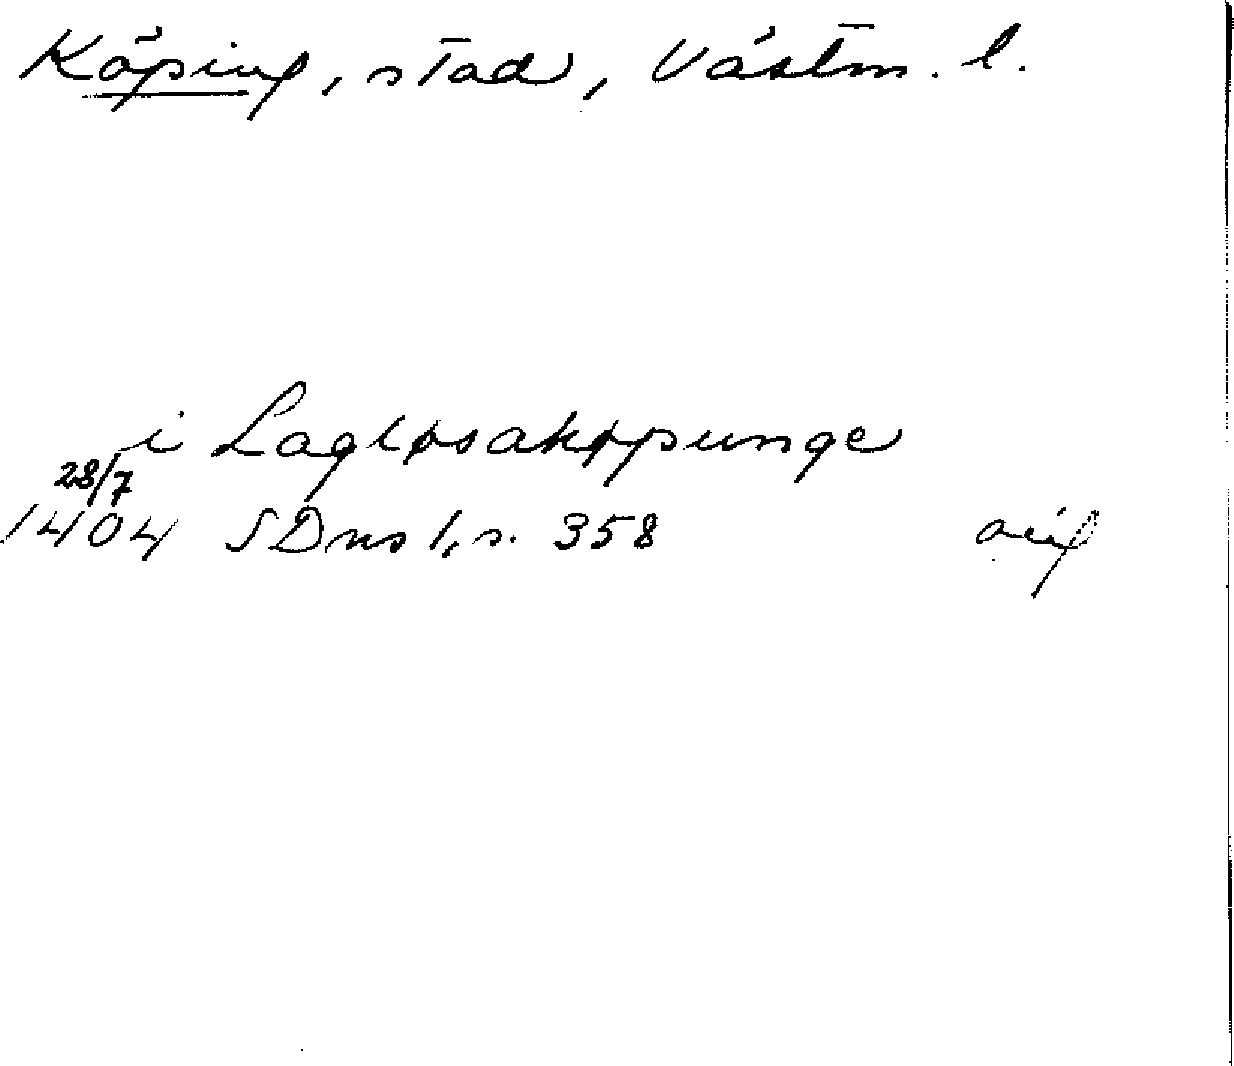 Köping, stad, Västm. l.
i Lagløsakøpunge
28/7
1404 SDns 1, s. 358 orig